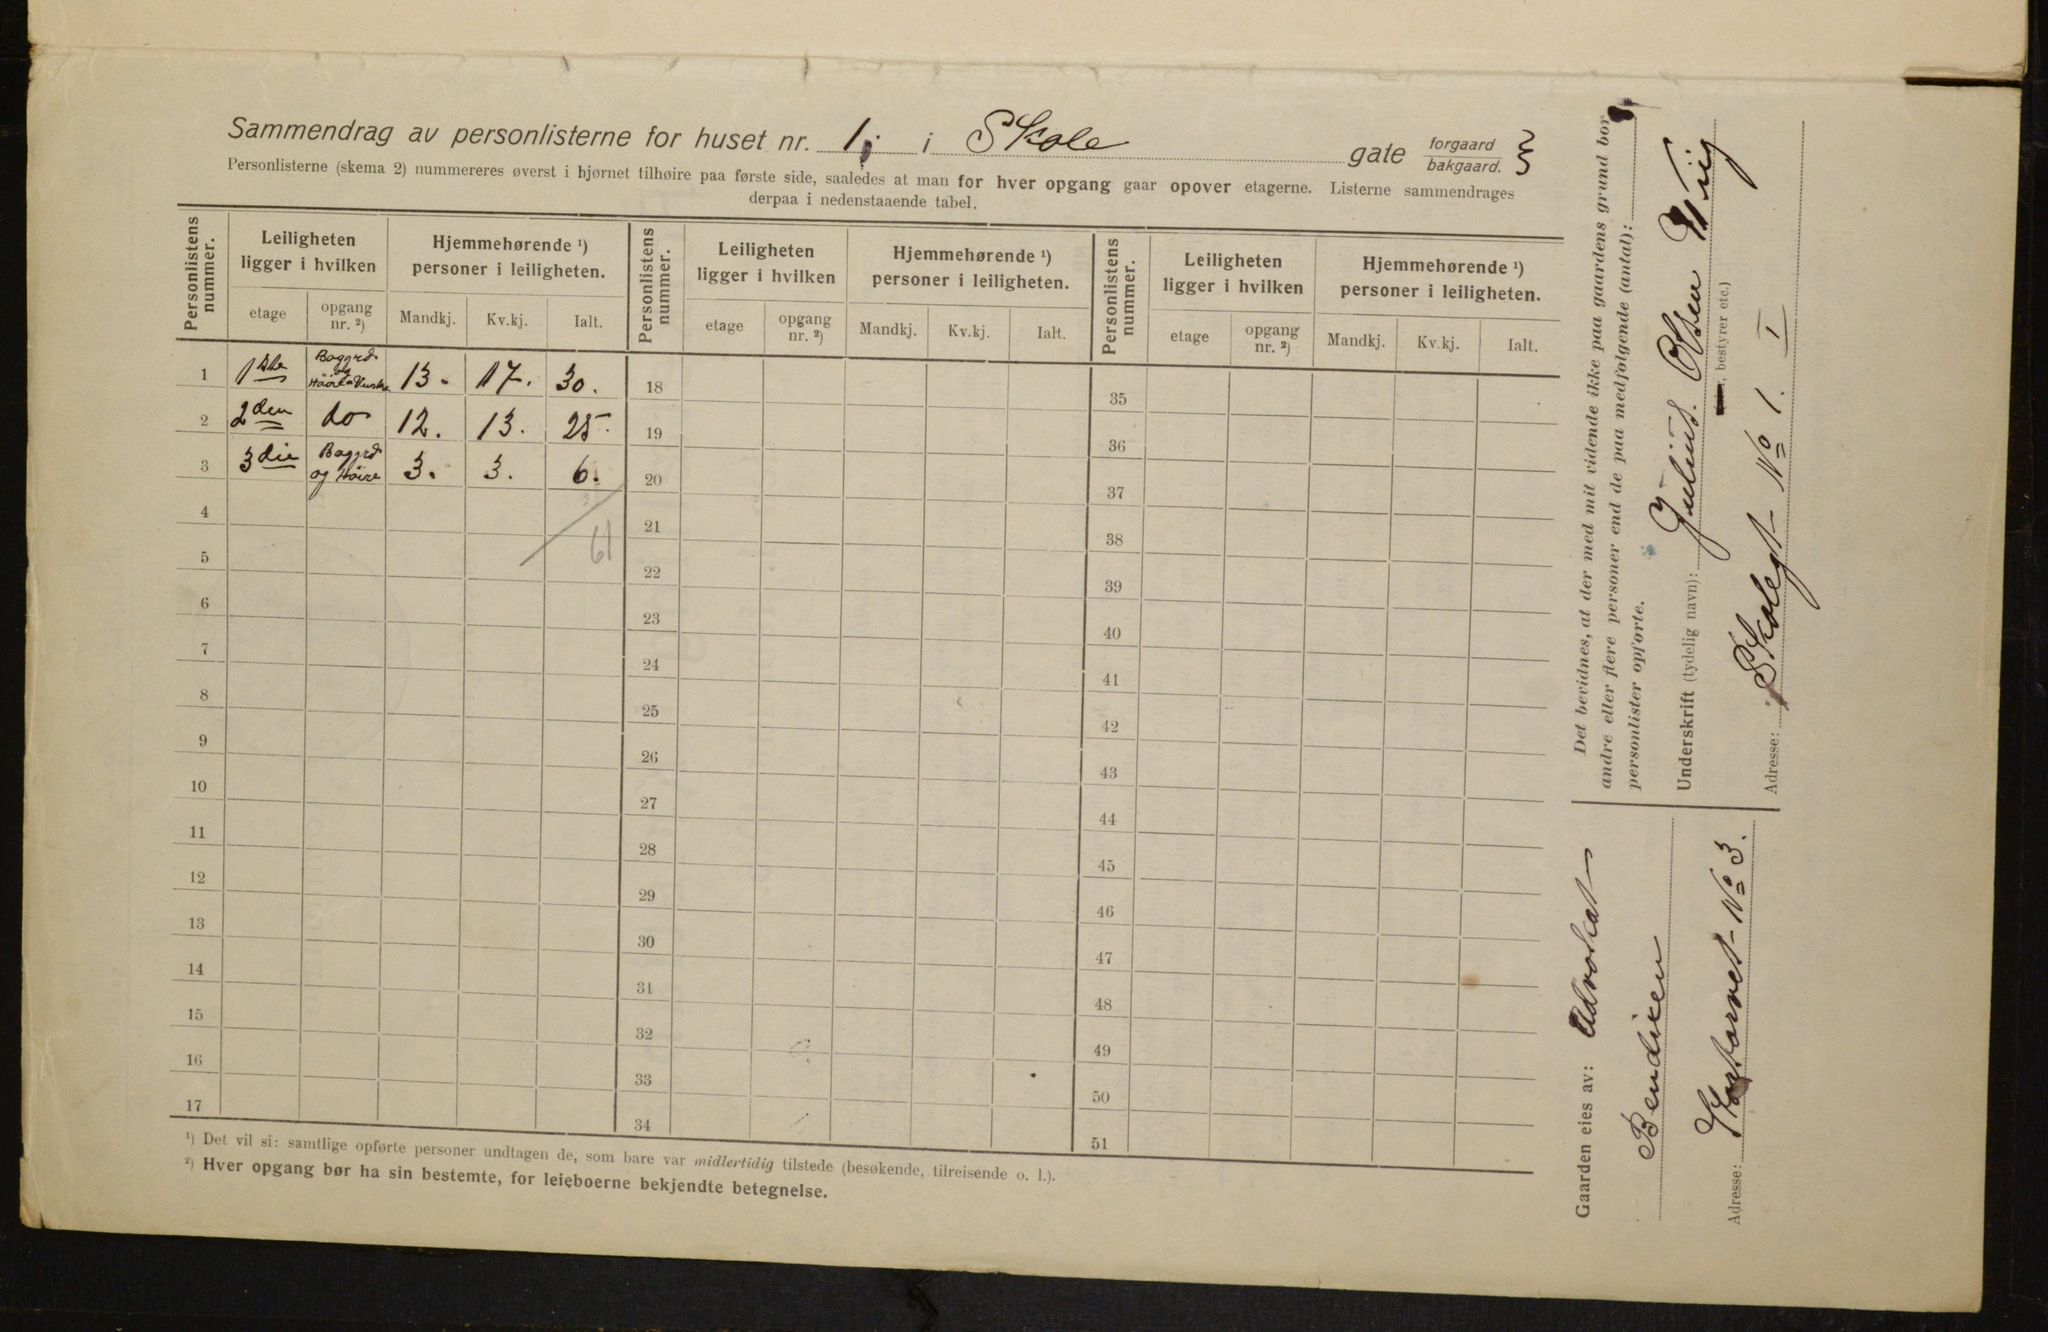 Sammendrag av personlisterne for huset nr. 1. i Skole gate forgaard bakgaard.
Personlisterne (skema 2) nummereres øverst i hjørnet tilhøire paa første side, saaledes at man for hver opgang gaar opover etagerne. Listerne sammendrages
derpaa i nedenstaaende tabel.
Personlistens nummer. Leiligheten ligger i hvilken Hjemmehørende ¹) personer i leiligheten. Personlistens nummer. Leiligheten ligger i hvilken Hjemmehørende ¹) personer i leiligheten. Personlistens nummer. Leiligheten ligger i hvilken Hjemmehørende ¹) personer i leiligheten.
etage opgang nr. ²) Mandkj. Kv.kj. Ialt. etage opgang nr. ²) Mandkj. Kv.kj. Ialt. etage opgang nr. ²) Mandkj. Kv.kj. Ialt.
1 1ste Baggrd og Höire 13. 17. 30. 18 35
2 2den do 12. 13. 25. 19 36
3 3die Baggrd og Höire 3. 3. 6. 20 37
4 21 38
5 61 22 39
6 23 40
7 24 41
8 25 42
9 26 43
10 27 44
11 28 45
12 29 46
13 30 47
14 31 48
15 32 49
16 33 50
17 34 51
¹) Det vil si: samtlige opførte personer undtagen de, som bare var midlertidig tilstede (besøkende, tilreisende o. l.).
²) Hver opgang bør ha sin bestemte, for leieboerne bekjendte betegnelse.
Det bevidnes, at der med mit vidende ikke paa gaardens grund bor
andre eller flere personer end de paa medfølgende (antal):
personlister opførte.
Underskrift (tydelig navn): Julius Olsen Wiig
, bestyrer etc.)
Adresse: Skolegt No 1. I
Gaarden eies av: Advokat
Bendixen
Adresse: No 3.